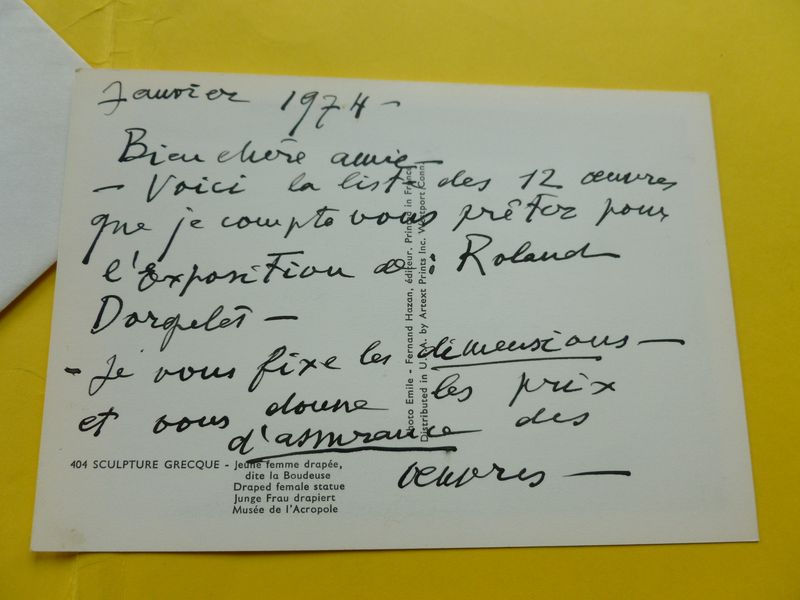 Janvier 1974 -
Bien chère amie -
- Voici la liste des 12 œuvres
que je compte vous prêter pour
l'Exposition de : Roland
Dorgelès -
- Je vous fixe les dimensions -
et vous donne les prix
d'assurance des
œuvres -
404 SCULPTURE GRECQUE - Jeune femme drapée,
dite la Boudeuse
Draped female statue
Junge Frau drapiert
Musée de l'Acropole
Photo Emile - Fernand Hazan, éditeur. Printed in France
Distributed in U.S.A. by Artext Prints Inc. Westport Conn.